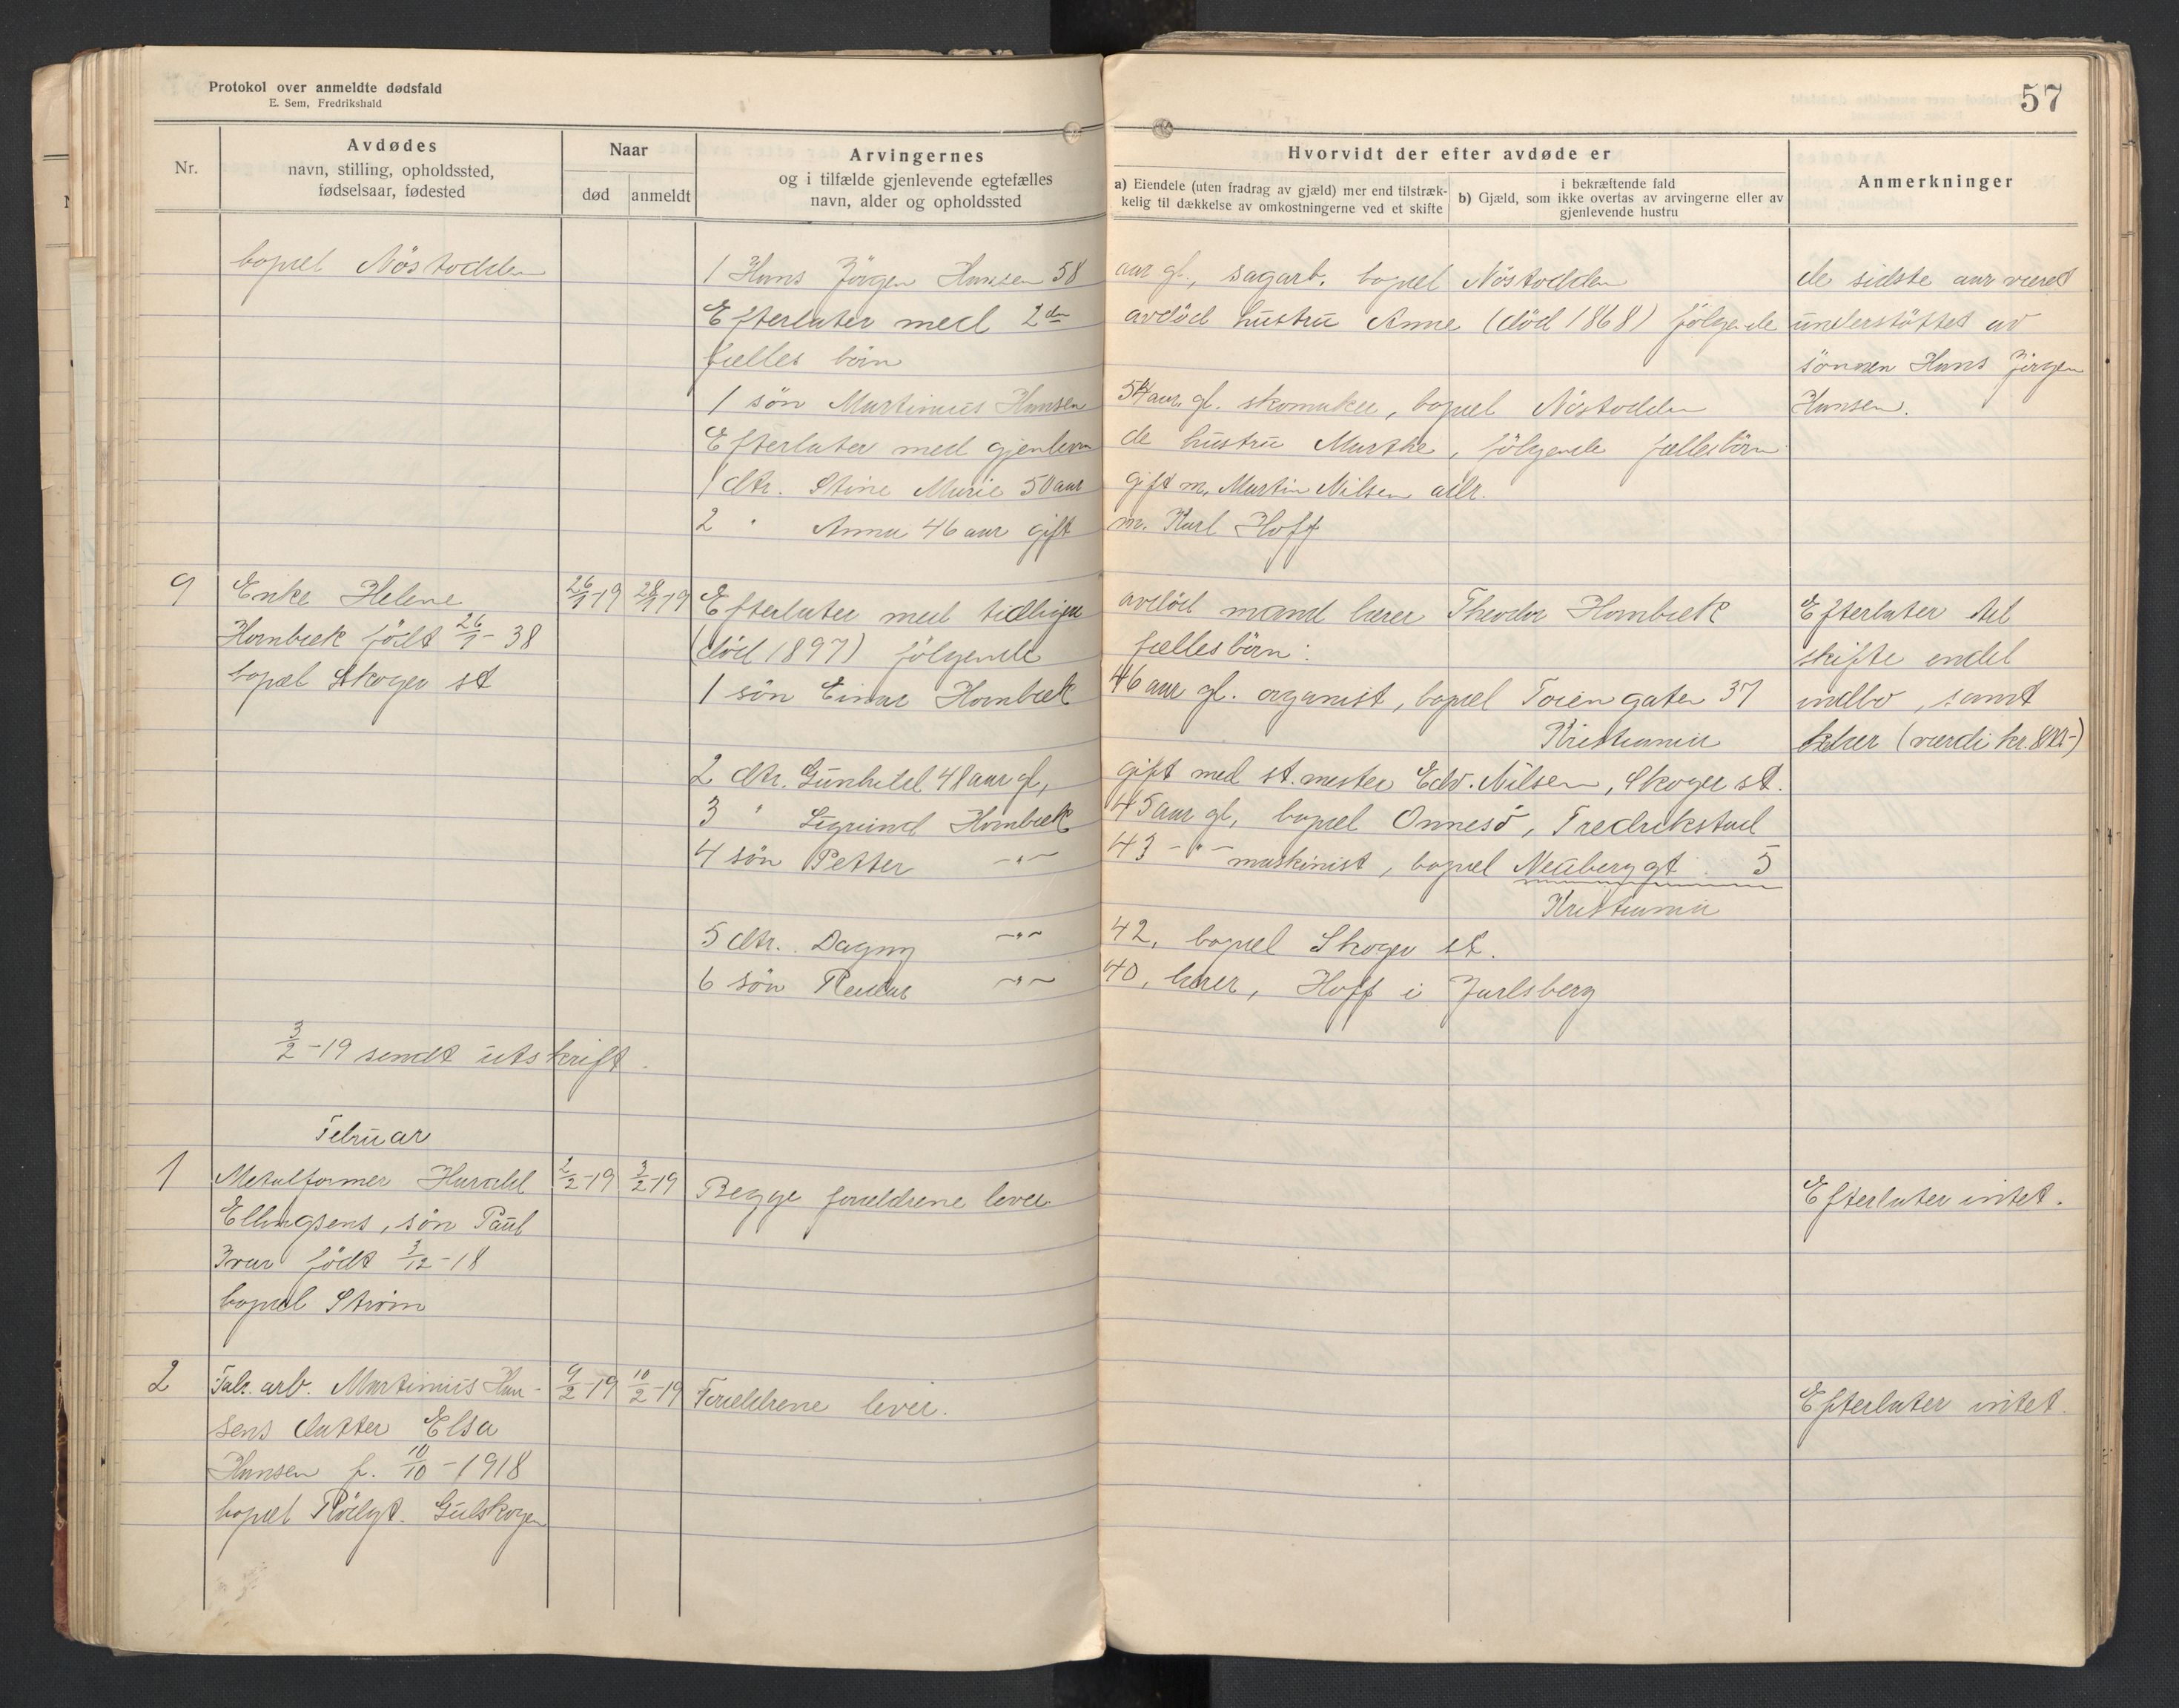 Protokol over anmeldte dødsfald
E. Sem, Fredrikshald
57
Nr.
Avdødes
navn, stilling, opholdssted,
fødselsaar, fødested
Naar
død
anmeldt
Arvingernes
og i tilfælde gjenlevende egtefælles
navn, alder og opholdssted
Hvorvidt der efter avdøde er
a) Eiendele (uten fradrag av gjæld) mer end tilstræk-
kelig til dækkelse av omkostningerne ved et skifte
i bekræftende fald
b) Gjæld, som ikke overtas av arvingerne eller av
gjenlevende hustru
Anmerkninger
bopæl Nöstodden 1 Hans Jörgen Hansen 58 aar gl, sagarb. bopæl Nöstodden de sidste aar været
Efterlater med 2den avdöd hustru Anne (död 1868) følgende understöttet av
fælles börn sönnen Hans Jörgen
1 sön Martinius Hansen 54 aar gl. skomaker, bopæl Nöstodden Hansen.
Efterlater med gjenleven de hustru Marthe, fölgende fællesbörn
1 dtr. Stine Marie 50 aar gift m. Martin Nilsen
2 " Anna 46 aar gift m. Karl Hoff
9 Enke Helene 26/1-19 28/1-19 Efterlater med tidligere avdöd mand lærer Theodor Hornbæk Efterlater til
Hornbæk födt 26/1-38 (död 1897) fölgende fællesbörn: skifte endel
bopæl Skoger st 1 sön Einar Hornbæk 46 aar gl. organist, bopæl Toiengaten 37 indbo, samt
Kristiania (værdi kr.
2 dtr. Gunhild 48 aar gl, gift med st.mester Edv. Nilsen, Skoger st.
3 " Sigrund Hornbæk 45 aar gl, bopæl Onnesö, Fredrikstad
4 sön Petter -"- 43 -"- maskinist, bopæl Neuberggt. 5
Kristiania
5 dtr. Dagny -"- 42, bopæl Skoger st.
6 sön Reidar -"- 40, lærer, Hoff i Jarlsberg
3/2-19 sendt utskrift.
Februar
1 Metalformer Harald 2/2-19 3/2-19 Begge forældrene lever Efterlater intet.
Ellingsens, sön Paul
Ivar födt 3/12-18
bopæl Ström
2 Fabr. arb. Martinius Han- 9/2-19 10/2-19 Forældrene lever. Efterlater intet.
sens datter Elsa
Hansen f. 10/10-1918
bopæl Rödgt. Gulskogen